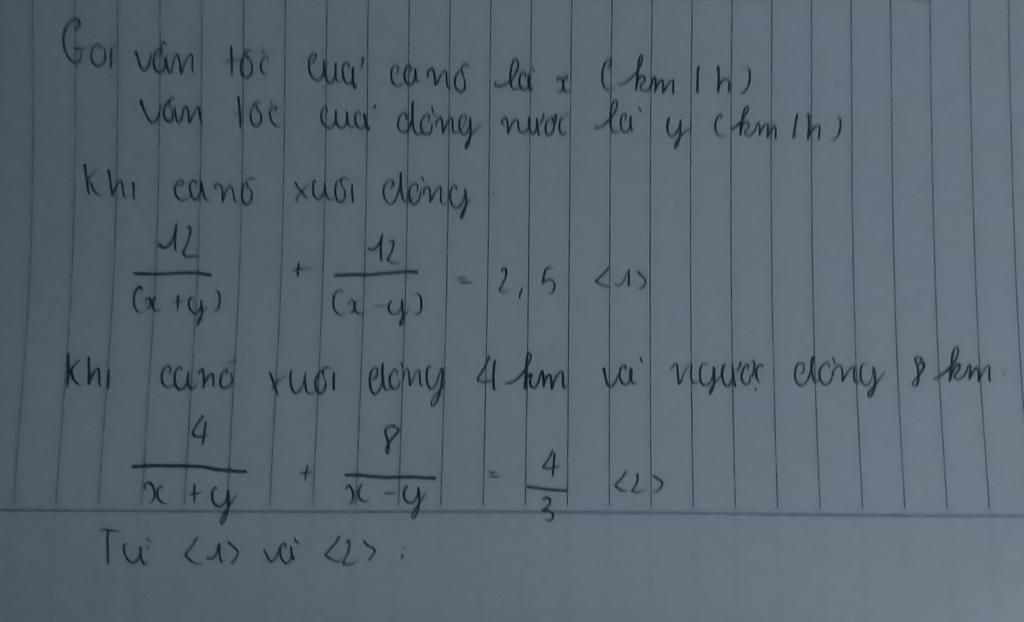 Gọi vận tốc của canô là x (km/h)
vận tốc của dòng nước là y (km/h)
Khi canô xuôi dòng
12/(x+y) + 12/(x-y) = 2,5 <1>
Khi canô xuôi dòng 4 km và ngược dòng 8 km
4/x+y + 8/x-y = 4/3 <2>
Từ <1> và <2> :